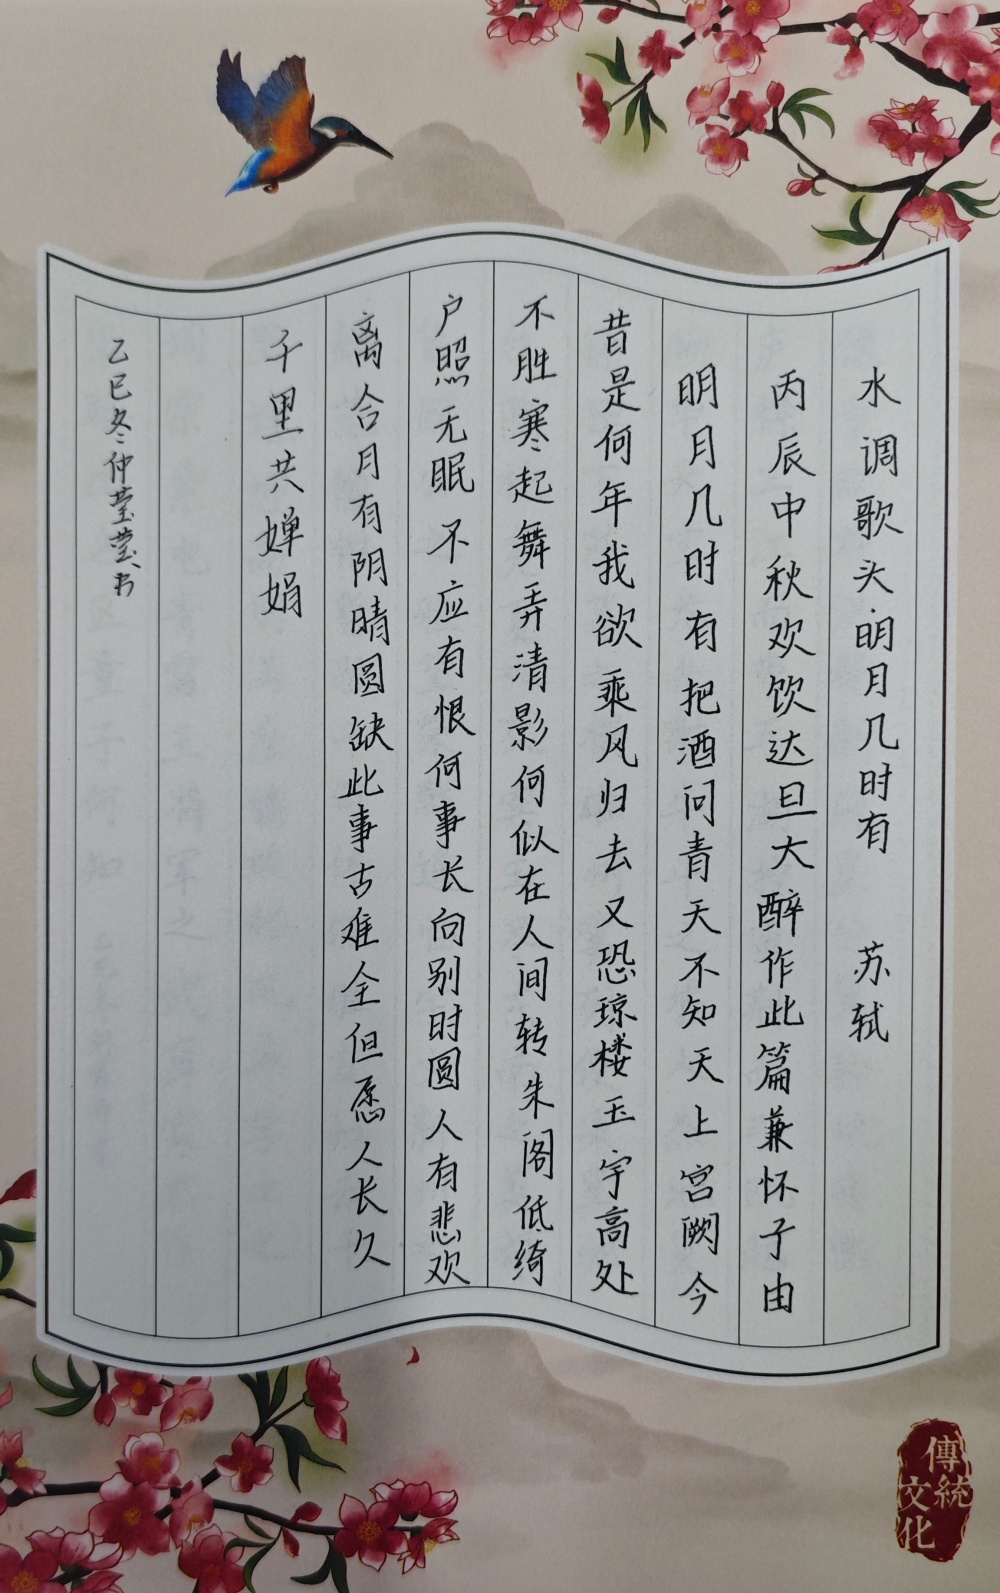 水调歌头·明月几时有 苏轼
丙辰中秋欢饮达旦大醉作此篇兼怀子由
明月几时有把酒问青天不知天上宫阙今
昔是何年我欲乘风归去又恐琼楼玉宇高处
不胜寒起舞弄清影何似在人间转朱阁低绮
户照无眠不应有恨何事长向别时圆人有悲欢
离合月有阴晴圆缺此事古难全但愿人长久
千里共婵娟
乙巳冬仲莹莹书
傳統
文化